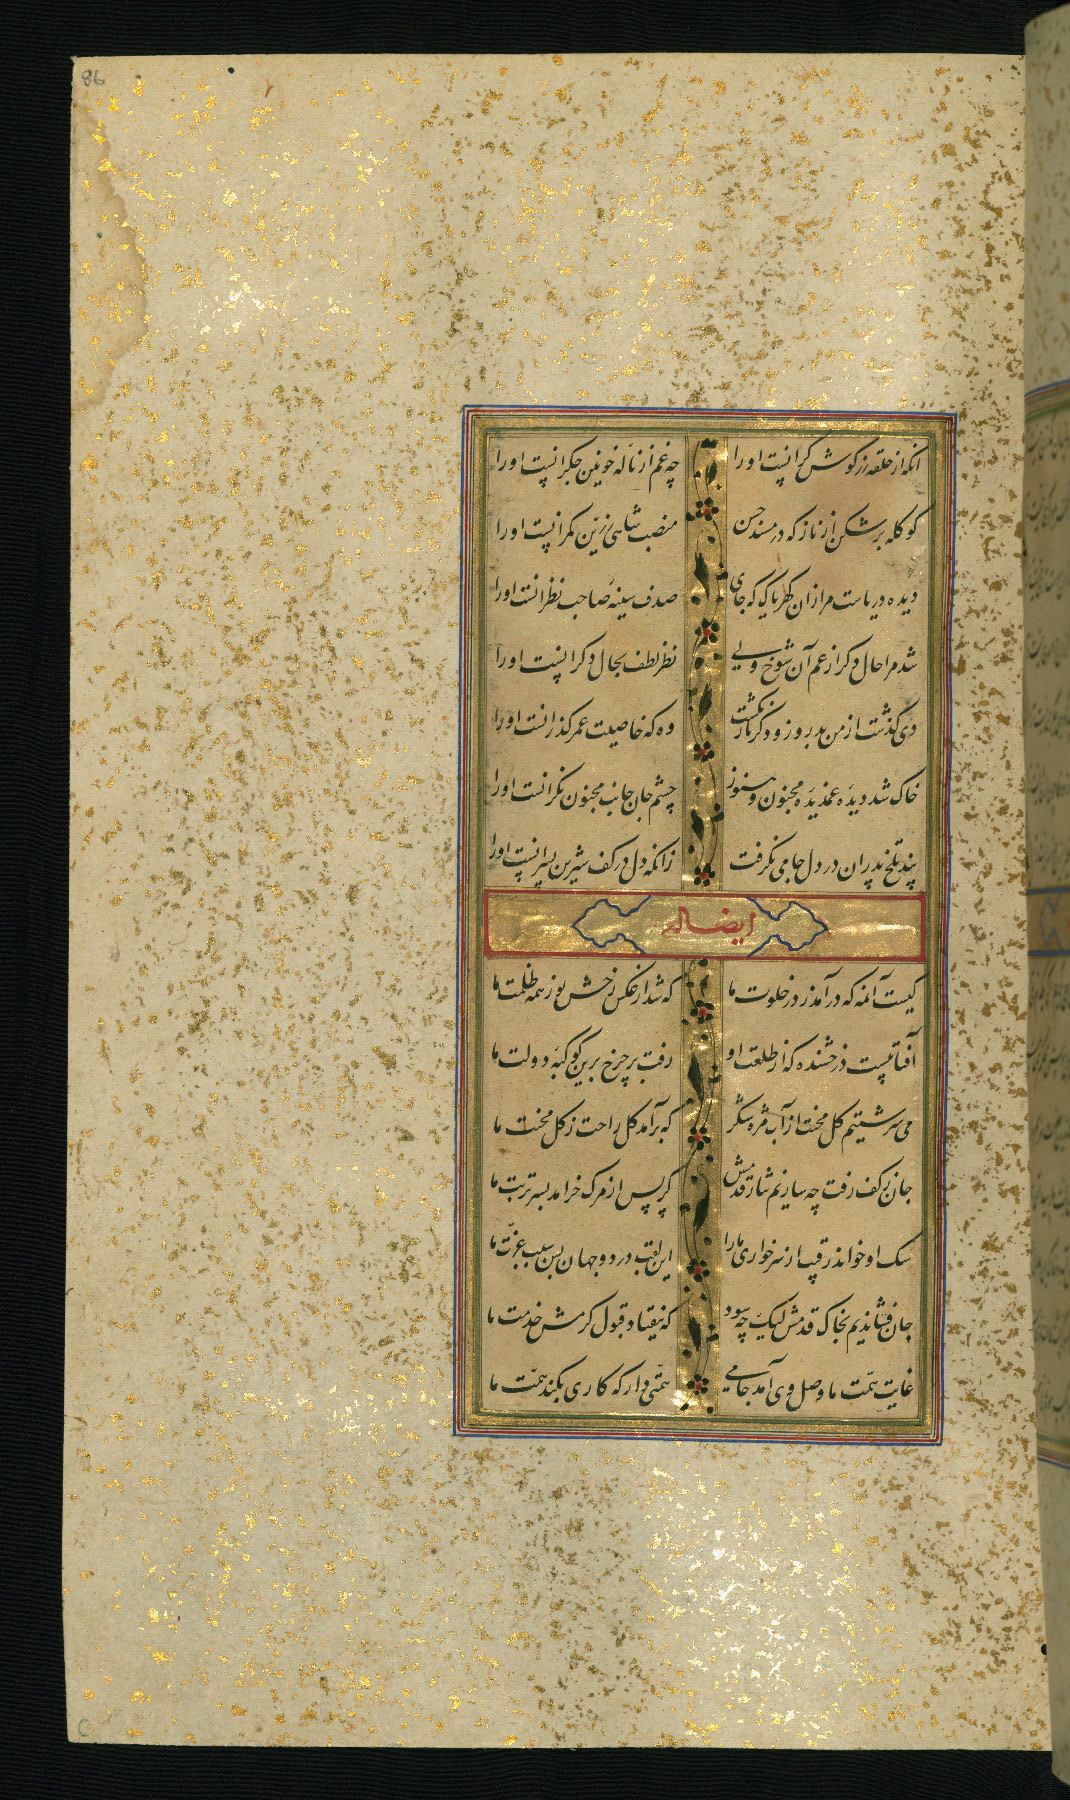 86
انکه از حلقه زر کوش کرانست اورا چه غم از ناله خونین جکرانست اورا
کو کله برشکن از ناز که در مسند حسن منصب شاهی زرین کمرانست اورا
دیده دریاست مرا زان کهر پاک که جای صدف سینه صاحب نظرانست اورا
شد مرا حال دکر از غم آن شوخ ولی نظر لطف بحال دکرانست اورا
دی گذشت از من بدروز و دکر باز نکشت وه که خاصیت عمر گذرانست اورا
خاک شد دیده غمدیده مجنون و هنوز چشم جان جانب مجنون نکرانست اورا
پند تلخ پدران در دل جامی نکرفت زانکه دل در کف شیرین پسرانست اورا
ایضا له
کیست آن مه که درآمد ز در خلوت ما که شد از عکس رخش نور همه ظلمت ما
آفتابیست درخشنده که از طلعت او رفت بر چرخ برین کوکبه دولت ما
می سرشتیم کل محنت از آب مژه شکر که برآمد کل راحت ز کل محنت ما
جان ز کف رفت چه سازیم نثار قدمش کر پس از مرک خرامد بسر تربت ما
سک او خواند رقیب از سر خواری مارا این لقب در دو جهان بس سبب عزت ما
جان فشاندیم بخاک قدمش لیک چه سود که نیفتاد قبول کرمش خدمت ما
غایت همت ما وصل وی آمد جامی همتی دار که کاری بکند همت ما